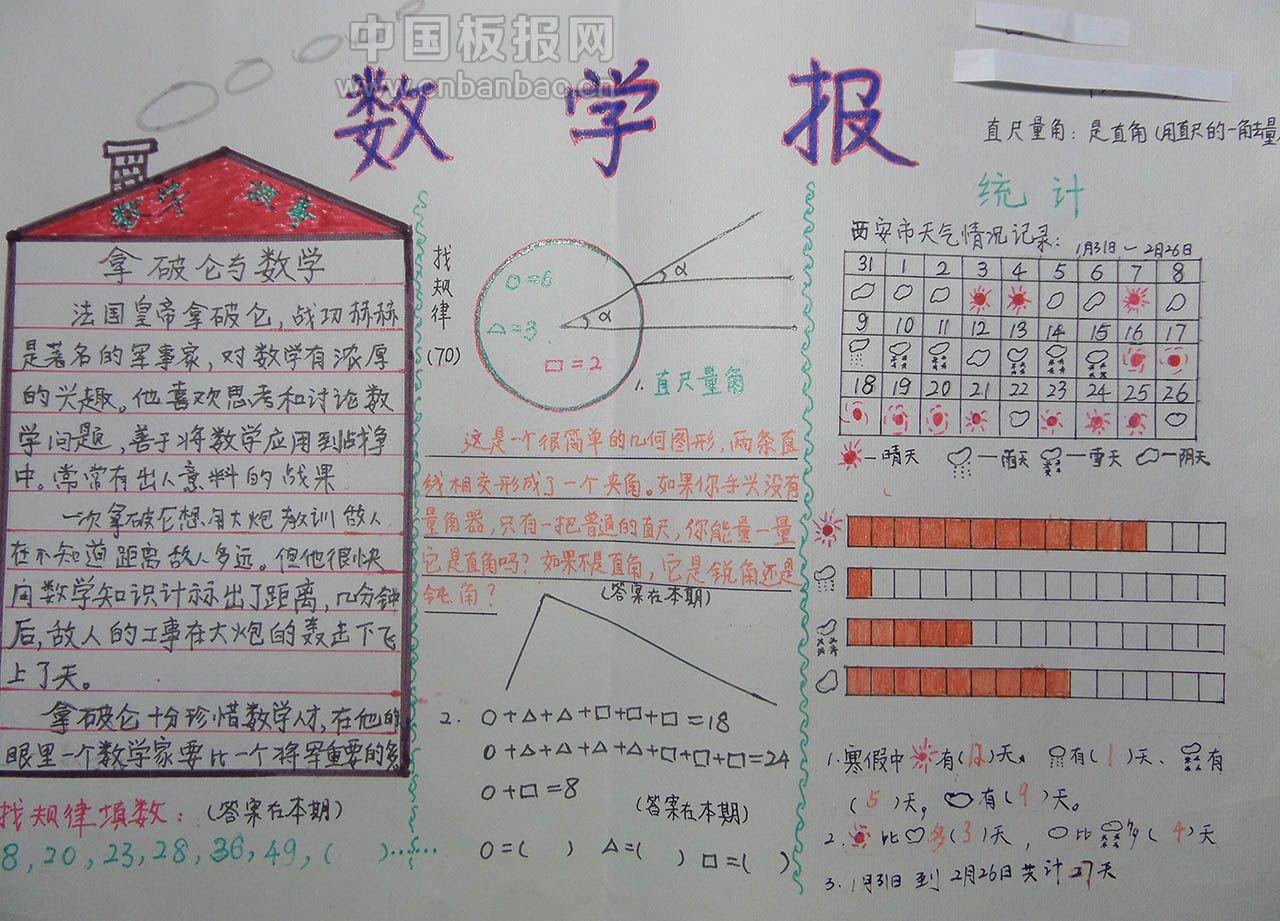 中国板报网
www.cnbanbao.cn
数学报
直尺量角：是直角(用直尺的一角去量
数学 故事
拿破仑与数学
法国皇帝拿破仑，战功赫赫
是著名的军事家，对数学有浓厚
的兴趣。他喜欢思考和讨论数
学问题，善于将数学应用到战争
中。常常有出人意料的战果
一次拿破仑想用大炮教训敌人
在不知道距离敌人多远。但他很快
向数学知识计示出了距离，几分钟
后，敌人的工事在大炮的轰击下飞
上了天。
拿破仑十分珍惜数学人才，在他的
眼里一个数学家要比一个将军重要的多
找规律填数：(答案在本期)
8，20，23，28，36，49，( )……
找规律
(70)
○=6
△=3
□=2
α
α
1.直尺量角
这是一个很简单的几何图形，两条直
线相交形成了一个夹角。如果你手头没有
量角器，只有一把普通的直尺，你能量一量
它是直角吗？如果不是直角，它是锐角还是
钝角？
(答案在本期)
2. ○+△+△+□+□+□=18
○+△+△+△+△+□+□+□=24
○+□=8
(答案在本期)
○=( ) △=( ) □=( )
统计
西安市天气情况记录：1月31日—2月26日
31 1 2 3 4 5 6 7 8
9 10 11 12 13 14 15 16 17
18 19 20 21 22 23 24 25 26
—晴天 —雨天 —雪天 —阴天
1.寒假中有(12)天，有(1)天、有
(5)天，有(9)天。
2.比多(3)天，比多(4)天
3.1月31日到2月26日共计27天